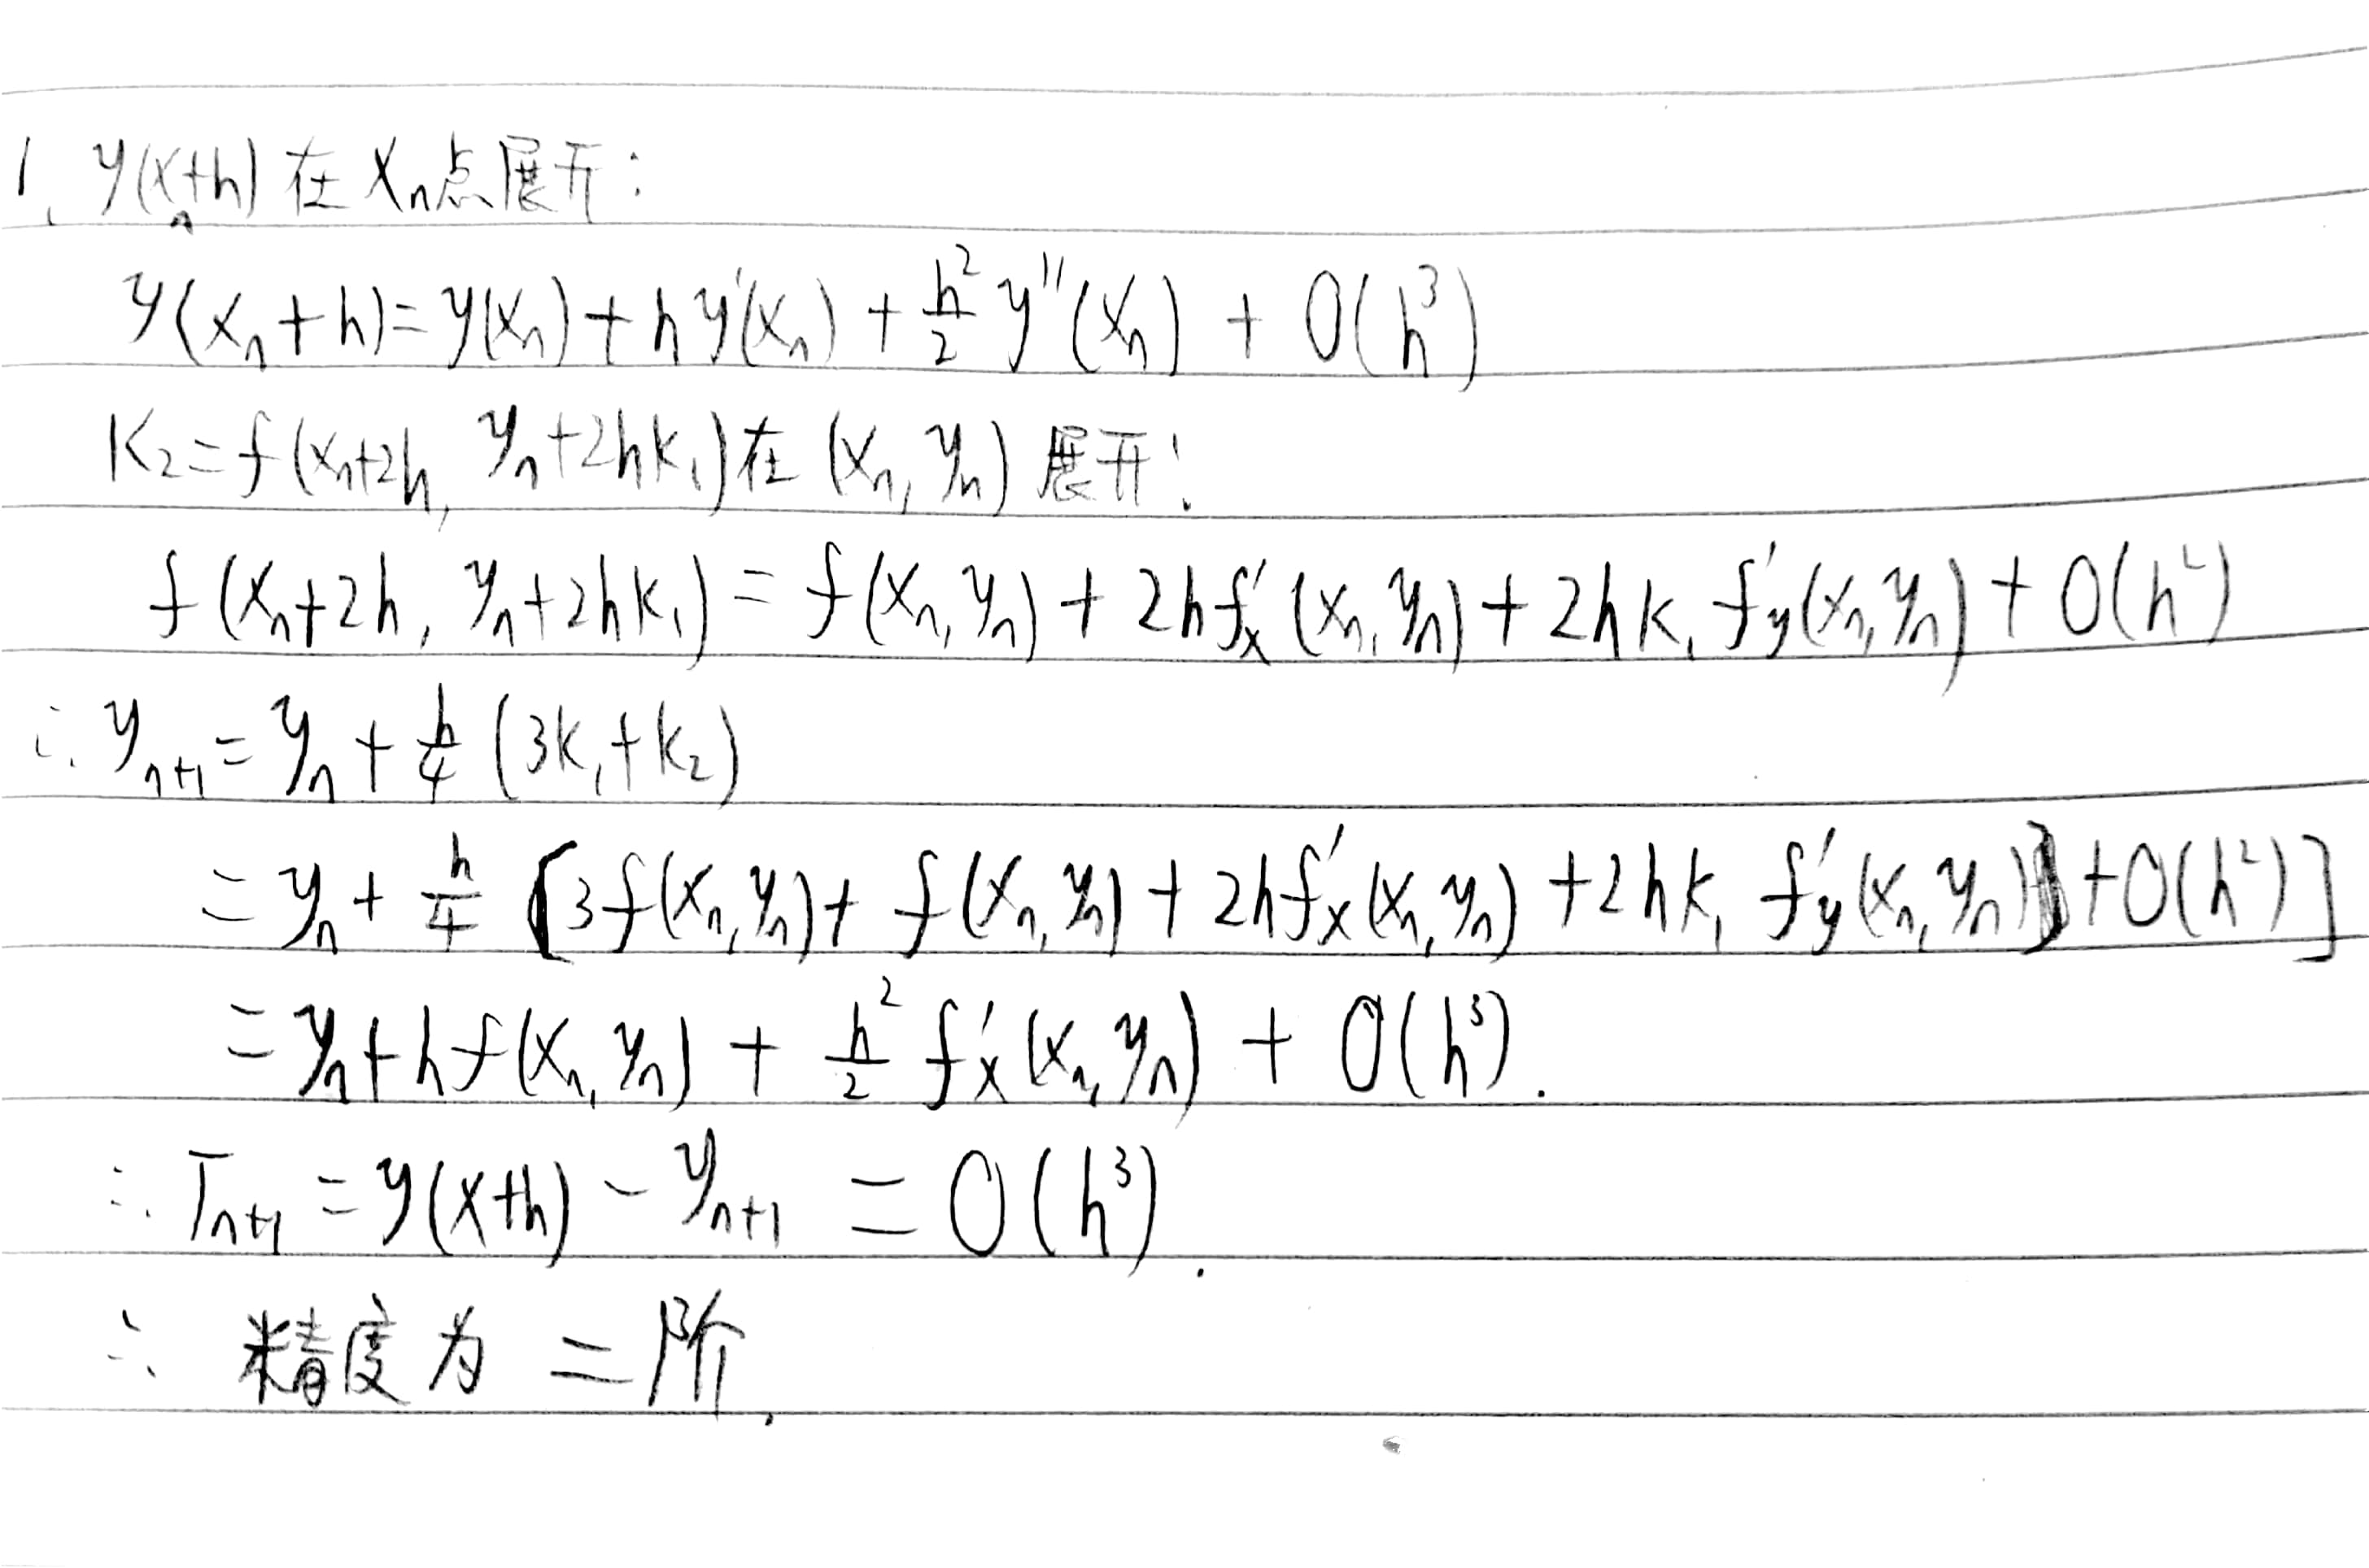 1. y(xₙ+h) 在 xₙ点展开:
y(xₙ+h)=y(xₙ)+hy'(xₙ)+h²/2 y''(xₙ) + O(h³)
K₂=f(xₙ+2h, yₙ+2hk₁)在 (xₙ, yₙ) 展开:
f(xₙ+2h, yₙ+2hk₁) = f(xₙ,yₙ) + 2hf'ₓ(xₙ,yₙ) + 2hk₁f'y(xₙ,yₙ) + O(h²)
∴ yₙ₊₁=yₙ+h/4 (3k₁+k₂)
=yₙ+h/4 [3f(xₙ,yₙ)+f(xₙ,yₙ)+2hf'ₓ(xₙ,yₙ)+2hk₁f'y(xₙ,yₙ)+O(h²)]
=yₙ+hf(xₙ,yₙ)+h²/2 f'ₓ(xₙ,yₙ)+O(h³).
∴ Tₙ₊₁=y(x+h)-yₙ₊₁=O(h³).
∴ 精度为二阶.